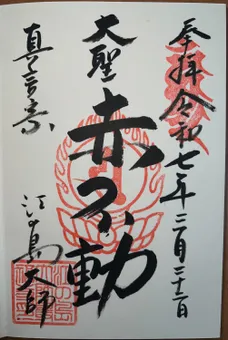 奉拝 令和七年二月二十二日
大聖 赤不動
真言宗
江の島大師